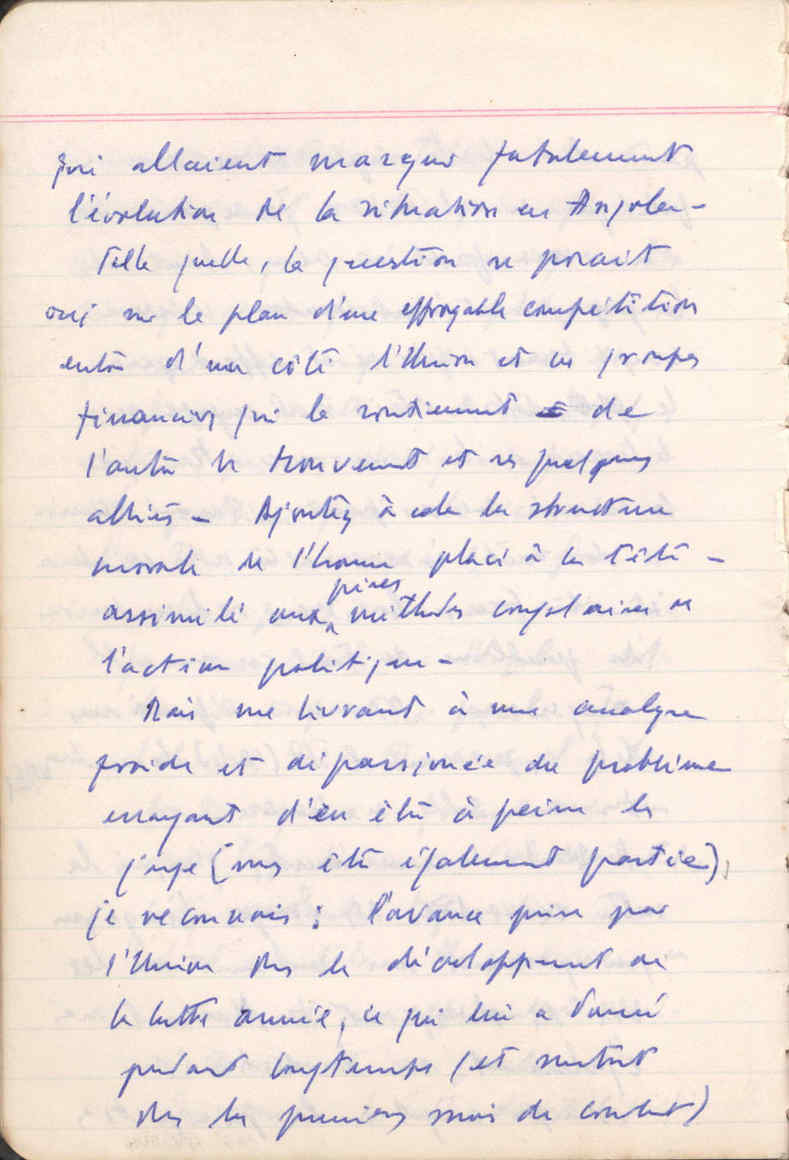 qui allaient marquer fatalement
l'évolution de la situation en Angola –
Telle quelle, la question se posait
sur le plan d'une effroyable compétition
entre d'un côté l'Union et les groupes
financiers qui le soutiennent de
l'autre le Mouvement et ses quelques
alliés – Ajoutez à cela la structure
morale de l'homme placé à la tête –
assimilé aux pires méthodes de
l'action politique –
Mais me livrant à une analyse
froide et dépassionnée du problème
essayant d'en être à peine le
juge (sans être également partie),
je reconnais : l'avance prise par
l'Union dans le développement de
la lutte armée, ce qui lui a donné
pendant longtemps (et surtout
dans les premiers mois de combat)